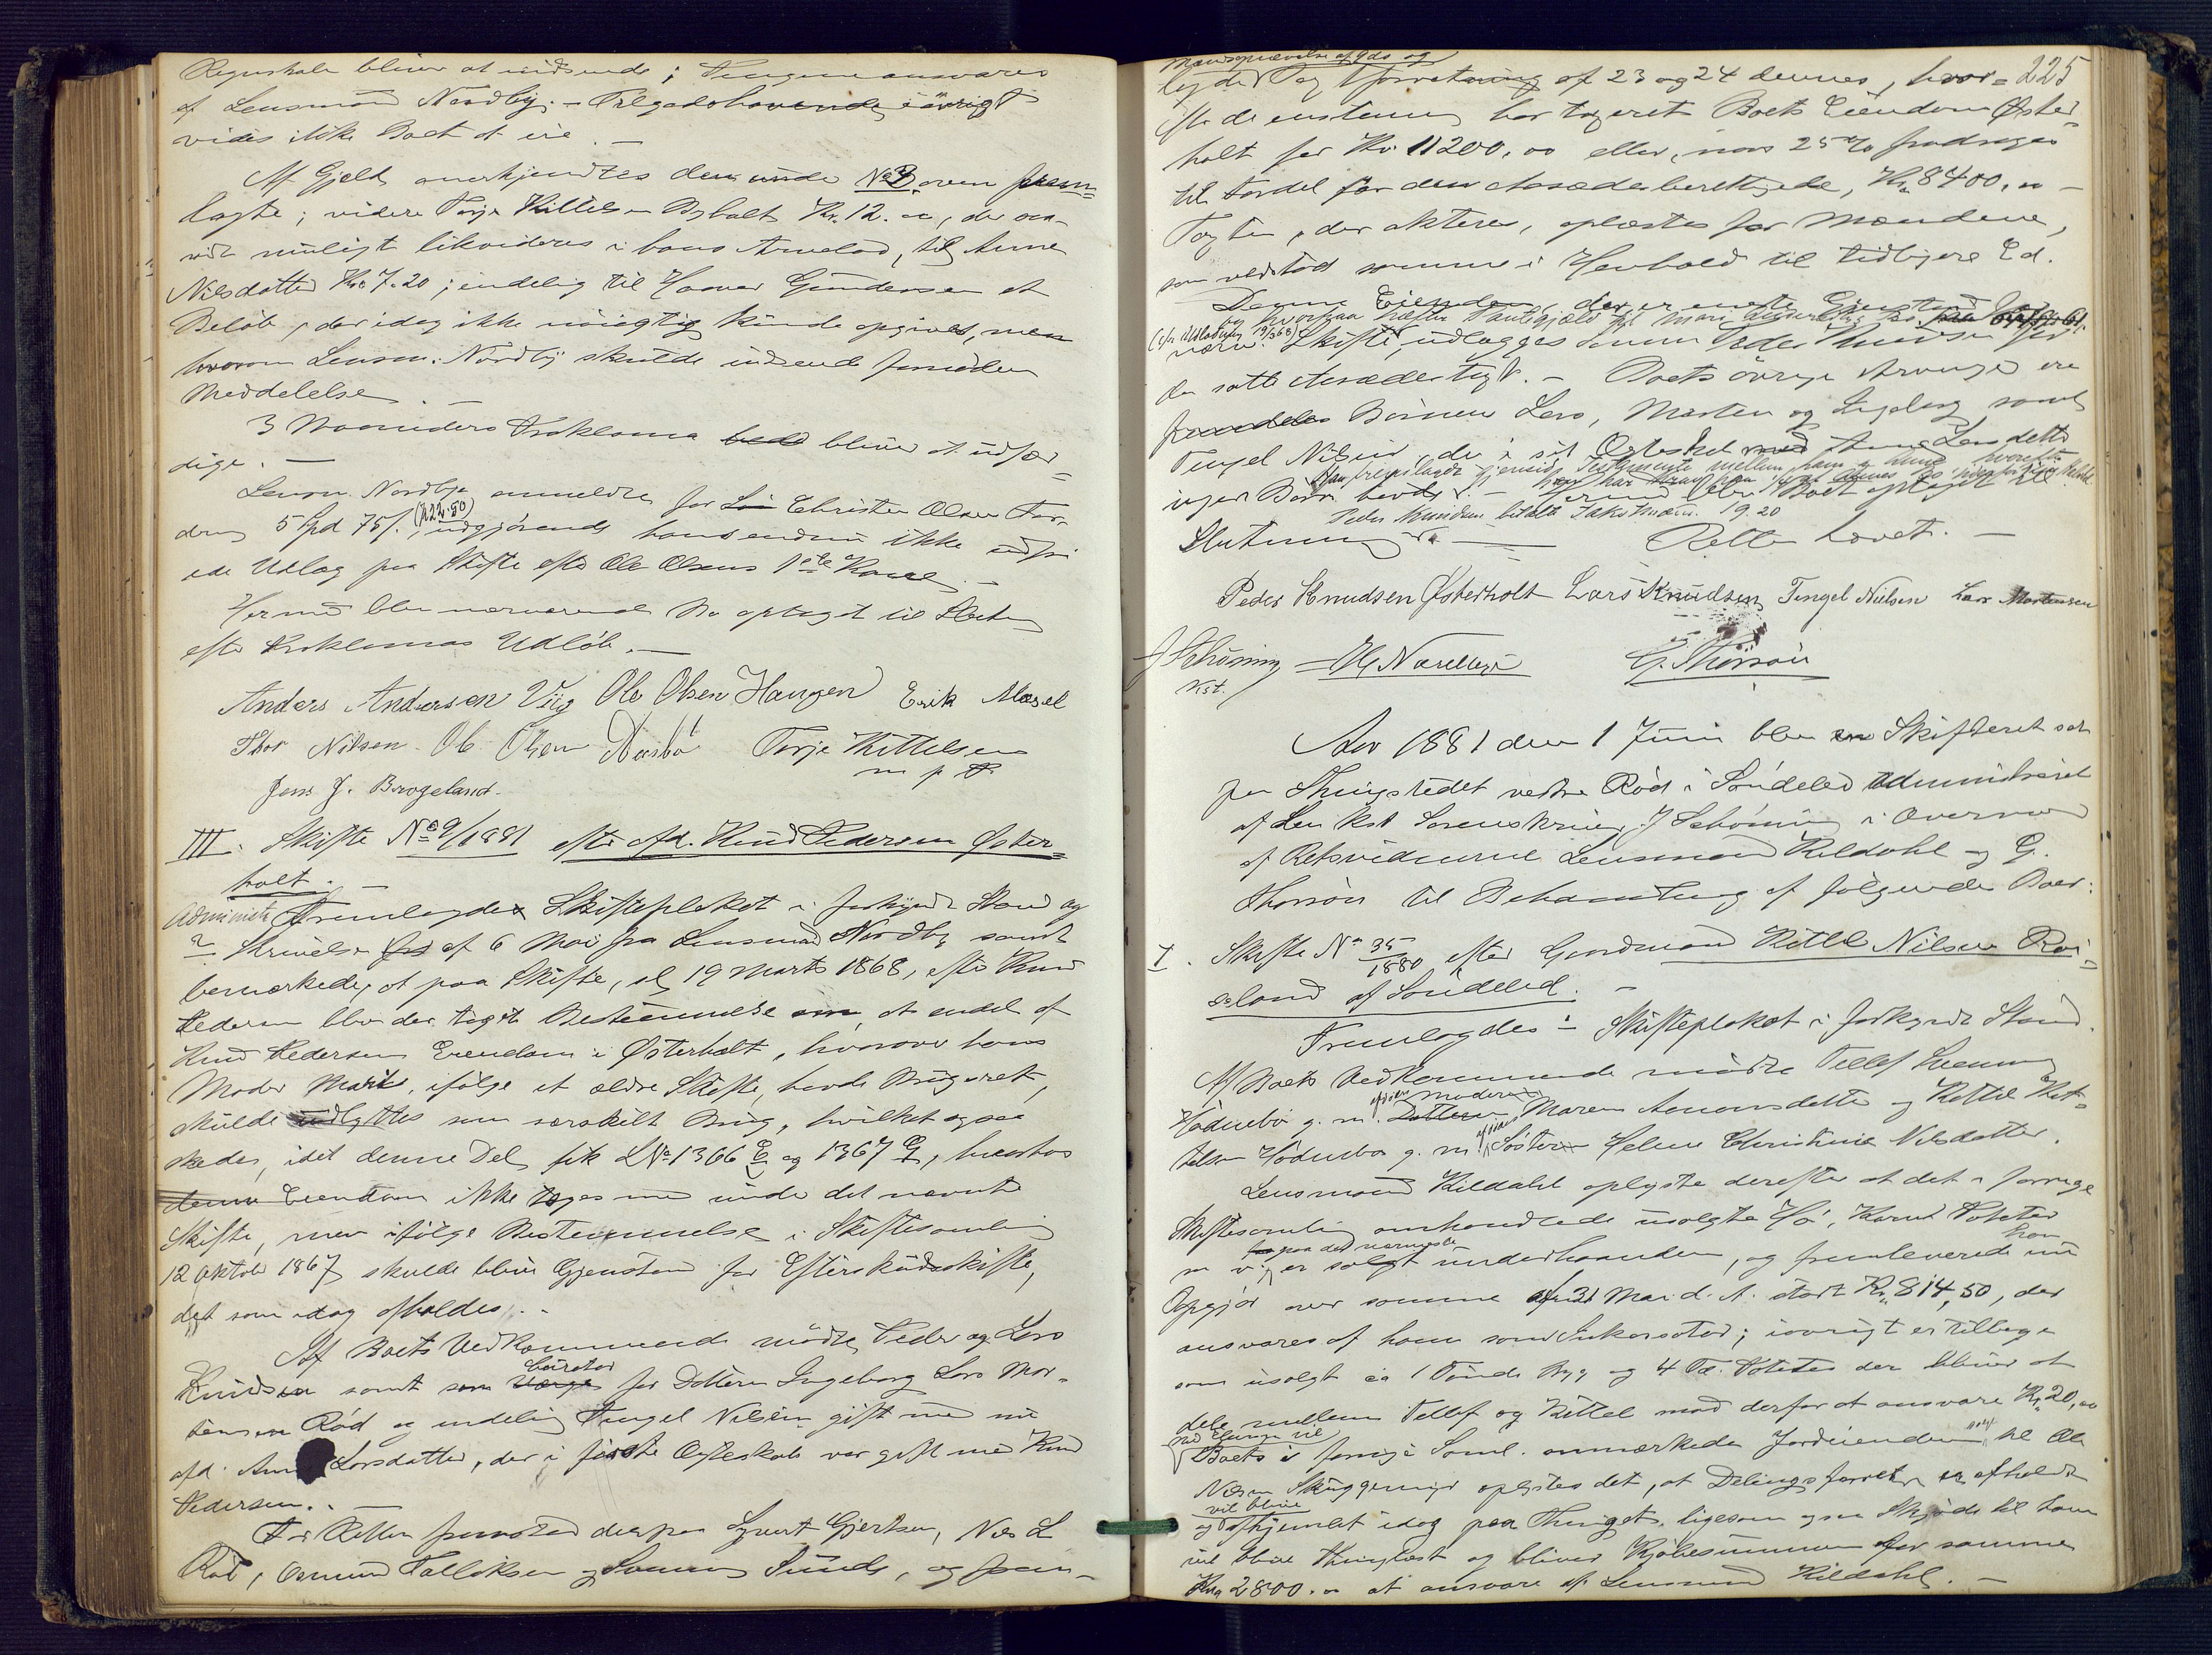 Regnskab bliver at indsende; Pengene ansvares
af Lensmand Nordby. – Tilgodehavende iøvrigt
vides ikke Boet at eie. –
Af Gjeld anerkjendtes den under No 2 oven frem-
lagte; videre Terje Kittelsen Kr. 12. oo, der saa-
vidt muligt likvideres i hans Arvelod, til Anne
Nilsdatter Kr. 7.20; endelig til Haaver Gundersen et
Beløb, der idag ikke nøiagtig kunde opgives, men
hvorom Lensm. Nordby skulde indsende fornøden
Meddelelse. –
3 Maaneders Proklama bliver at udfær-
dige. –
Lensm. Nordby anmeldte for Christen Olsen For-
dring 5 Spd 75 f. (Kr 22.50), udgjørende hans endnu ikke
Udlæg paa Skifte efter Ole Olsens 1ste Kone. –
Hermed blev nærværende Bo optaget til Slutning
efter Proklamas Udløb. –
Anders Andersen Viig Ole Olsen Haugen Erik Mæsel
Thor Nilsen Ole Olsen Terje Kittelsen
m p P
Jens J. Brogeland.
III. Skifte No 9/1881 efter Afd. Knud Pedersen Øster-
holt. –
Administr Fremlagdes Skifteplakat i forkyndt Stand og
Skrivelse af 6 Mai fra Lensmand Nordby samt
bemærkedes, at paa Skifte, sl. 19 Marts 1868, efter Knud
Pedersen blev der taget Bestemmelse om, at endel af
Knud Pedersens Eiendom i Østerholt, hvorover hans
Moder Marthe, ifølge et ældre Skifte, havde Brugsret,
skulde udlægges som særskilt Brug, hvilket ogsaa
skedes, idet denne Del fik LNo 1366 E og 1367 E, hvorhos
denne Eiendom ikke toges med under det nævnte
Skifte, men ifølge Bestemmelse i Skiftesamling
12 Oktober 1867 skulde blive Gjenstand for Efterskudsskifte,
det som idag afholdes. –
Af Boets Vedkommende mødte Peder og Lars
Knudsen samt som Værge for Datteren Ingeborg Lars Mor-
tensen Rød og endelig Tengel Nilsen gift med nu
afd. Anne Larsdatter, der i første Ægteskab var gift med Knud
Pedersen. –
For Retten fremstod derpaa Syvert Gjertsen, Nils L
Rød, Osmund Tallaksen og Sunde, og frem-
225
lagdes Tagtforretning af 23 og 24 dennes, hvor-
efter de eenstemmig har taxeret Boets Eiendom Øster-
holt for Kr. 11200,oo eller, naar 25 % fradrages
til Fordel for den Aasædesberettigede, Kr. 8400,oo –
Tagten, der akteres, oplæstes for Mændene,
som vedstod samme i Henhold til tidligere Ed.
Denne Eiendom, der er eneste Gjenstand for
(cfr Udlodning 19/3 68)
nærv. Skifte, udlægges Sønnen Peder Knudsen for
den satte Aasædestagt. – Boets øvrige Arvinger ere
Børnene Lars, Morten og Ingeborg samt
Tengel Nilsen, der i sit Ægteskab med Anne Larsdatter
ingen Børn havde. – Hermed blev Boet optaget til
Peder Knudsen betalte Takstmænd. 19.20
Slutning. – Retten hævet. –
Peder Knudsen Østerholt Lars Knudsen Tengel Nielsen Lars Mortensen
J Schöning Kst. G. Thorsøn
Aar 1881 den 1 Juni blev Skifteret sat
paa Thingstedet vestre Rød i Søndeled administreret
af den kst Sorenskriver J Schöning i Overvær
af Retsvidnerne Lensmand Kildahl og G.
Thorsøn til Behandling af følgende Boer:
I. Skifte No 35/1880 efter Gaardmand Kittel Nilsen Røi-
seland af Søndeled. –
Fremlagdes: Skifteplakat i forkyndt Stand.
Af Boets Vedkommende mødte Tellef
Hødnebø g. m. Moderen Maren Aanonsdatter og Kittel Kit-
telsen Hødnebø g. m. Søster Helene Christine Nilsdatter.
Lensmand Kildahl oplyste derefter at det i forrige
Skiftesamling omhandlede usolgte Hø, Korn, Poteter
m v. er paa det nærmeste solgt underhaanden, og fremleverede han nu
Opgjør over samme af 31 Mai d. A. stort Kr. 814,50, der
ansvares af ham som Inkassator; iøvrigt er tilbage
som usolgt ca 1 Tønde Byg og 4 Td. Poteter der bliver at
dele mellem Tellef og Kittel mod derfor at ansvare Kr. 20,oo
Boets i forrige Saml. anmærkede Jordeiendom solgt til Ole
Nilsen Skuggemyr oplystes det, at Delingsforretn. er afholdt
og vil blive afhjemlet idag paa Thinget, ligesom ogsaa Skjøde til ham
vil blive thinglæst og bliver Kjøbesummen for samme
Kr. 2800.oo at ansvare af Lensmand Kildahl. –